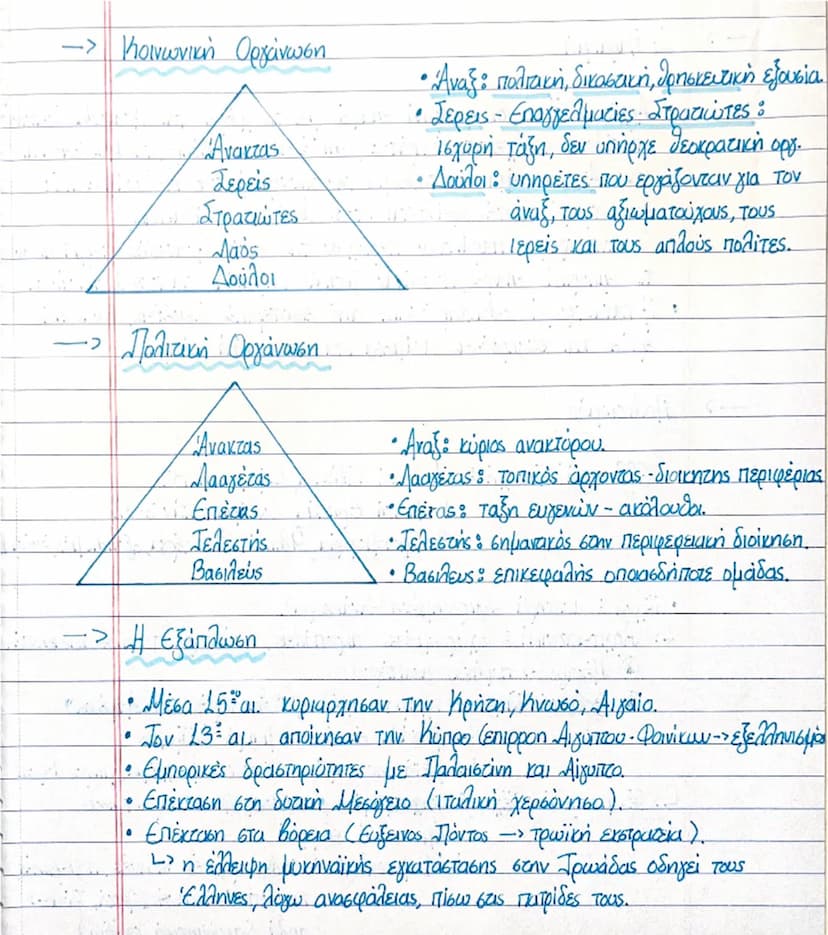 -> Κοινωνική Οργάνωση
Άνακτας
Ιερείς
Στρατιώτες
Λαός
Δούλοι
• Άναξ: πολιτική, δικαστική, θρησκευτική εξουσία.
• Ιερεις - Επαγγελματίες Στρατιώτες:
ισχυρή τάξη, δεν υπήρχε θεοκρατική οργ.
• Δούλοι: υπηρέτες που εργάζονταν για τον
άναξ, τους αξιωματούχους, τους
ιερείς και τους απλούς πολίτες.
-> Πολιτική Οργάνωση
Άνακτας
Λααγέτας
Επέτης
Τελεστής
Βασιλεύς
• Αναξ: κύριος ανακτόρου.
• Λααγέτας: τοπικός άρχοντας - διοικητης περιφέριας
• Επέτας: ταξη ευγενών - ακόλουθοι.
• Τελεστής: σημαντικός στην περιφερειακή διοίκηση.
• Βασιλευς: επικεφαλής οποιασδήποτε ομάδας.
-> Η Εξάπλωση
• Μέσα 15ου αι. κυριαρχησαν την Κρήτη, Κνωσό, Αιγαίο.
• Τον 13ο αι. αποίκησαν την Κύπρο (επιρροη Αιγυπτου - Φοινίκων -> εξελληνισμό
• Εμπορικές δραστηριότητες με Παλαιστίνη και Αίγυπτο.
• Επέκταση στη δυτική Μεσόγειο (ιταλική χερσόνησο).
• Επέκταση στα βόρεια (Ευξεινος Πόντος -> τρωϊκή εκστρατεία).
↳ η έλλειψη μυκηναϊκής εγκατάστασης στην Τρωάδας οδηγεί τους
Έλληνες, λόγω ανασφάλειας, πίσω στις πατρίδες τους.